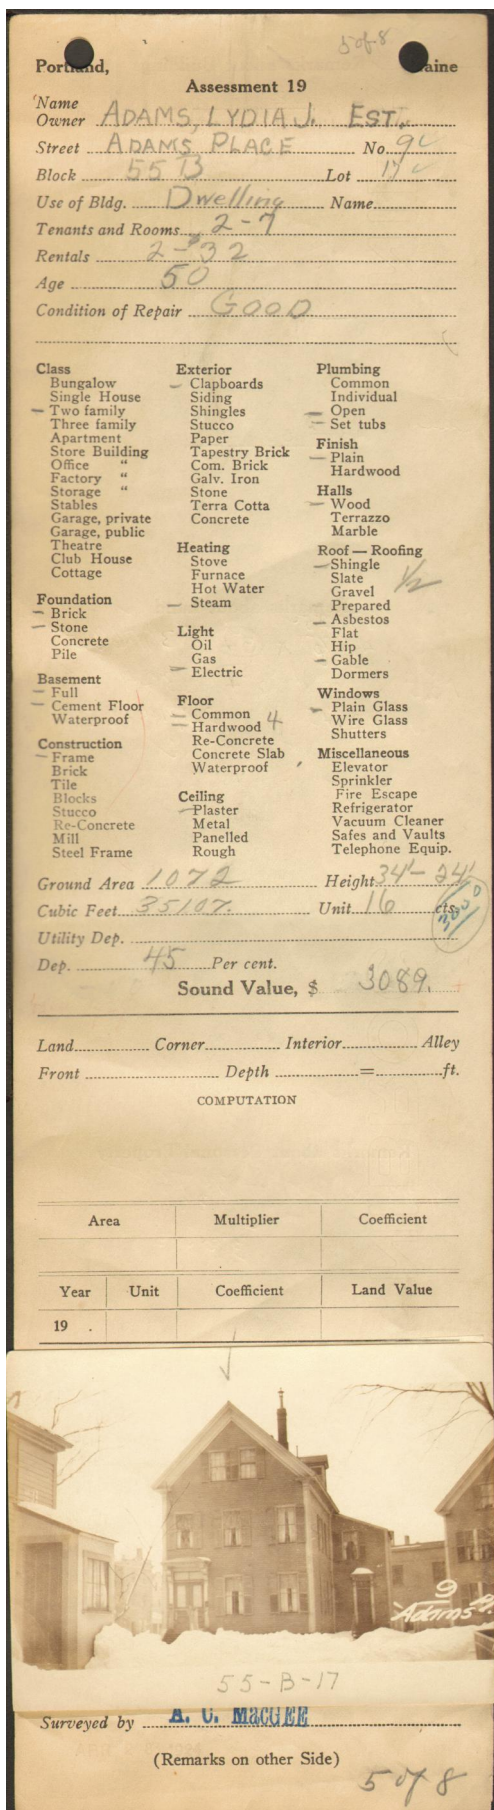 5 of 8
Portland, Maine
Assessment 19
Name
Owner ADAMS, LYDIA J. EST.
Street ADAMS PLACE No. 9
Block 55 B Lot 17
Use of Bldg. Dwelling Name
Tenants and Rooms 2-7
Rentals 2-$32
Age 50
Condition of Repair GOOD
Class
Bungalow
Single House
Two family
Three family
Apartment
Store Building
Office "
Factory "
Storage "
Stables
Garage, private
Garage, public
Theatre
Club House
Cottage
Foundation
Brick
Stone
Concrete
Pile
Basement
Full
Cement Floor
Waterproof
Construction
Frame
Brick
Tile
Blocks
Stucco
Re-Concrete
Mill
Steel Frame
Exterior
Clapboards
Siding
Shingles
Stucco
Paper
Tapestry Brick
Com. Brick
Galv. Iron
Stone
Terra Cotta
Concrete
Heating
Stove
Furnace
Hot Water
Steam
Light
Oil
Gas
Electric
Floor
Common
Hardwood 4
Re-Concrete
Concrete Slab
Waterproof
Ceiling
Plaster
Metal
Panelled
Rough
Plumbing
Common
Individual
Open
Set tubs
Finish
Plain
Hardwood
Halls
Wood
Terrazzo
Marble
Roof — Roofing
Shingle
Slate 1/2
Gravel
Prepared
Asbestos
Flat
Hip
Gable
Dormers
Windows
Plain Glass
Wire Glass
Shutters
Miscellaneous
Elevator
Sprinkler
Fire Escape
Refrigerator
Vacuum Cleaner
Safes and Vaults
Telephone Equip.
Ground Area 1072 Height 34'-24'
Cubic Feet 35107. Unit 16 cts.
Utility Dep.
Dep. 45 Per cent.
Sound Value, $ 3089.
Land Corner Interior Alley
Front Depth = ft.
COMPUTATION
Area Multiplier Coefficient
Year Unit Coefficient Land Value
19 .
9
Adams Pl.
55-B-17
Surveyed by A. C. MacGEE
(Remarks on other Side)
5 of 8